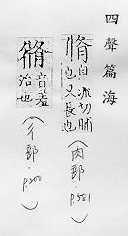 四聲篇海
脩 自流切脯也又長也 (肉部.p581)
音羞治也 (彳部.p200)